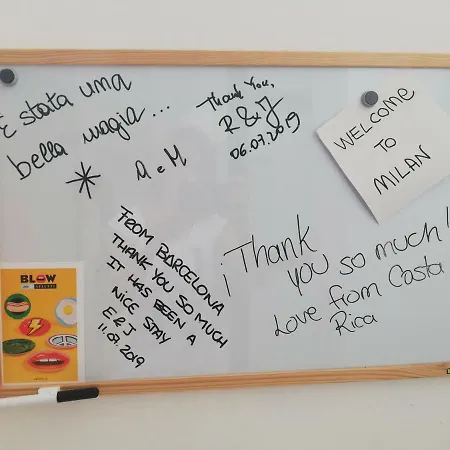 È stata una
bella magia...
M e M
Thank You,
R & J
06.07.2019
WELCOME
TO
MILAN
FROM BARCELONA
THANK YOU SO MUCH
IT HAS BEEN A
NICE STAY
E & J
11.07.2019
¡Thank
YOU SO MUCH!
Love from Costa
Rica
BLOW